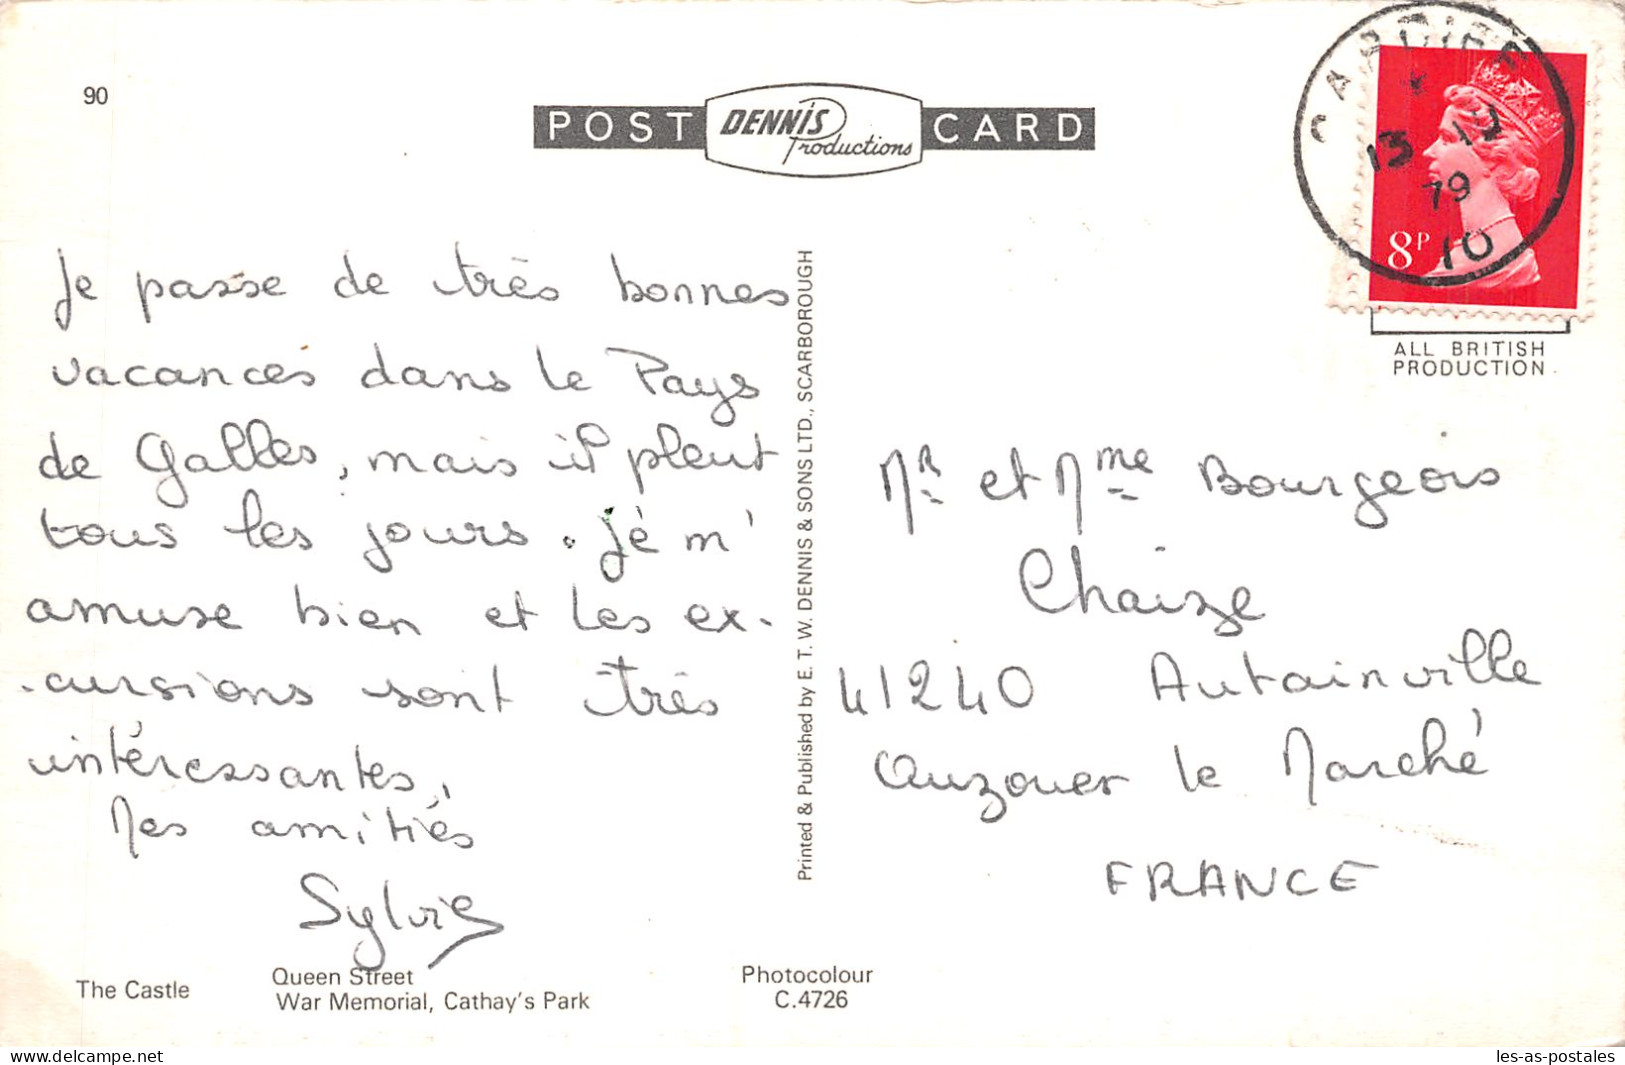 90
POST DENNIS Productions CARD
CARDIFF
13
79
10
8P
ALL BRITISH
PRODUCTION
Je passe de très bonnes
vacances dans le Pays
de Galles, mais il pleut
tous les jours. Je m'
amuse bien et les ex-
-cursions sont très
intéressantes,
Mes amitiés
Sylvie
Printed & Published by E. T. W. DENNIS & SONS LTD., SCARBOROUGH
MR et Mme Bourgeois
Chaize
41240 Autainville
Ouzouer le Marché
FRANCE
The Castle
Queen Street
War Memorial, Cathay's Park
Photocolour
C.4726
delcampe.net
les-as-postales